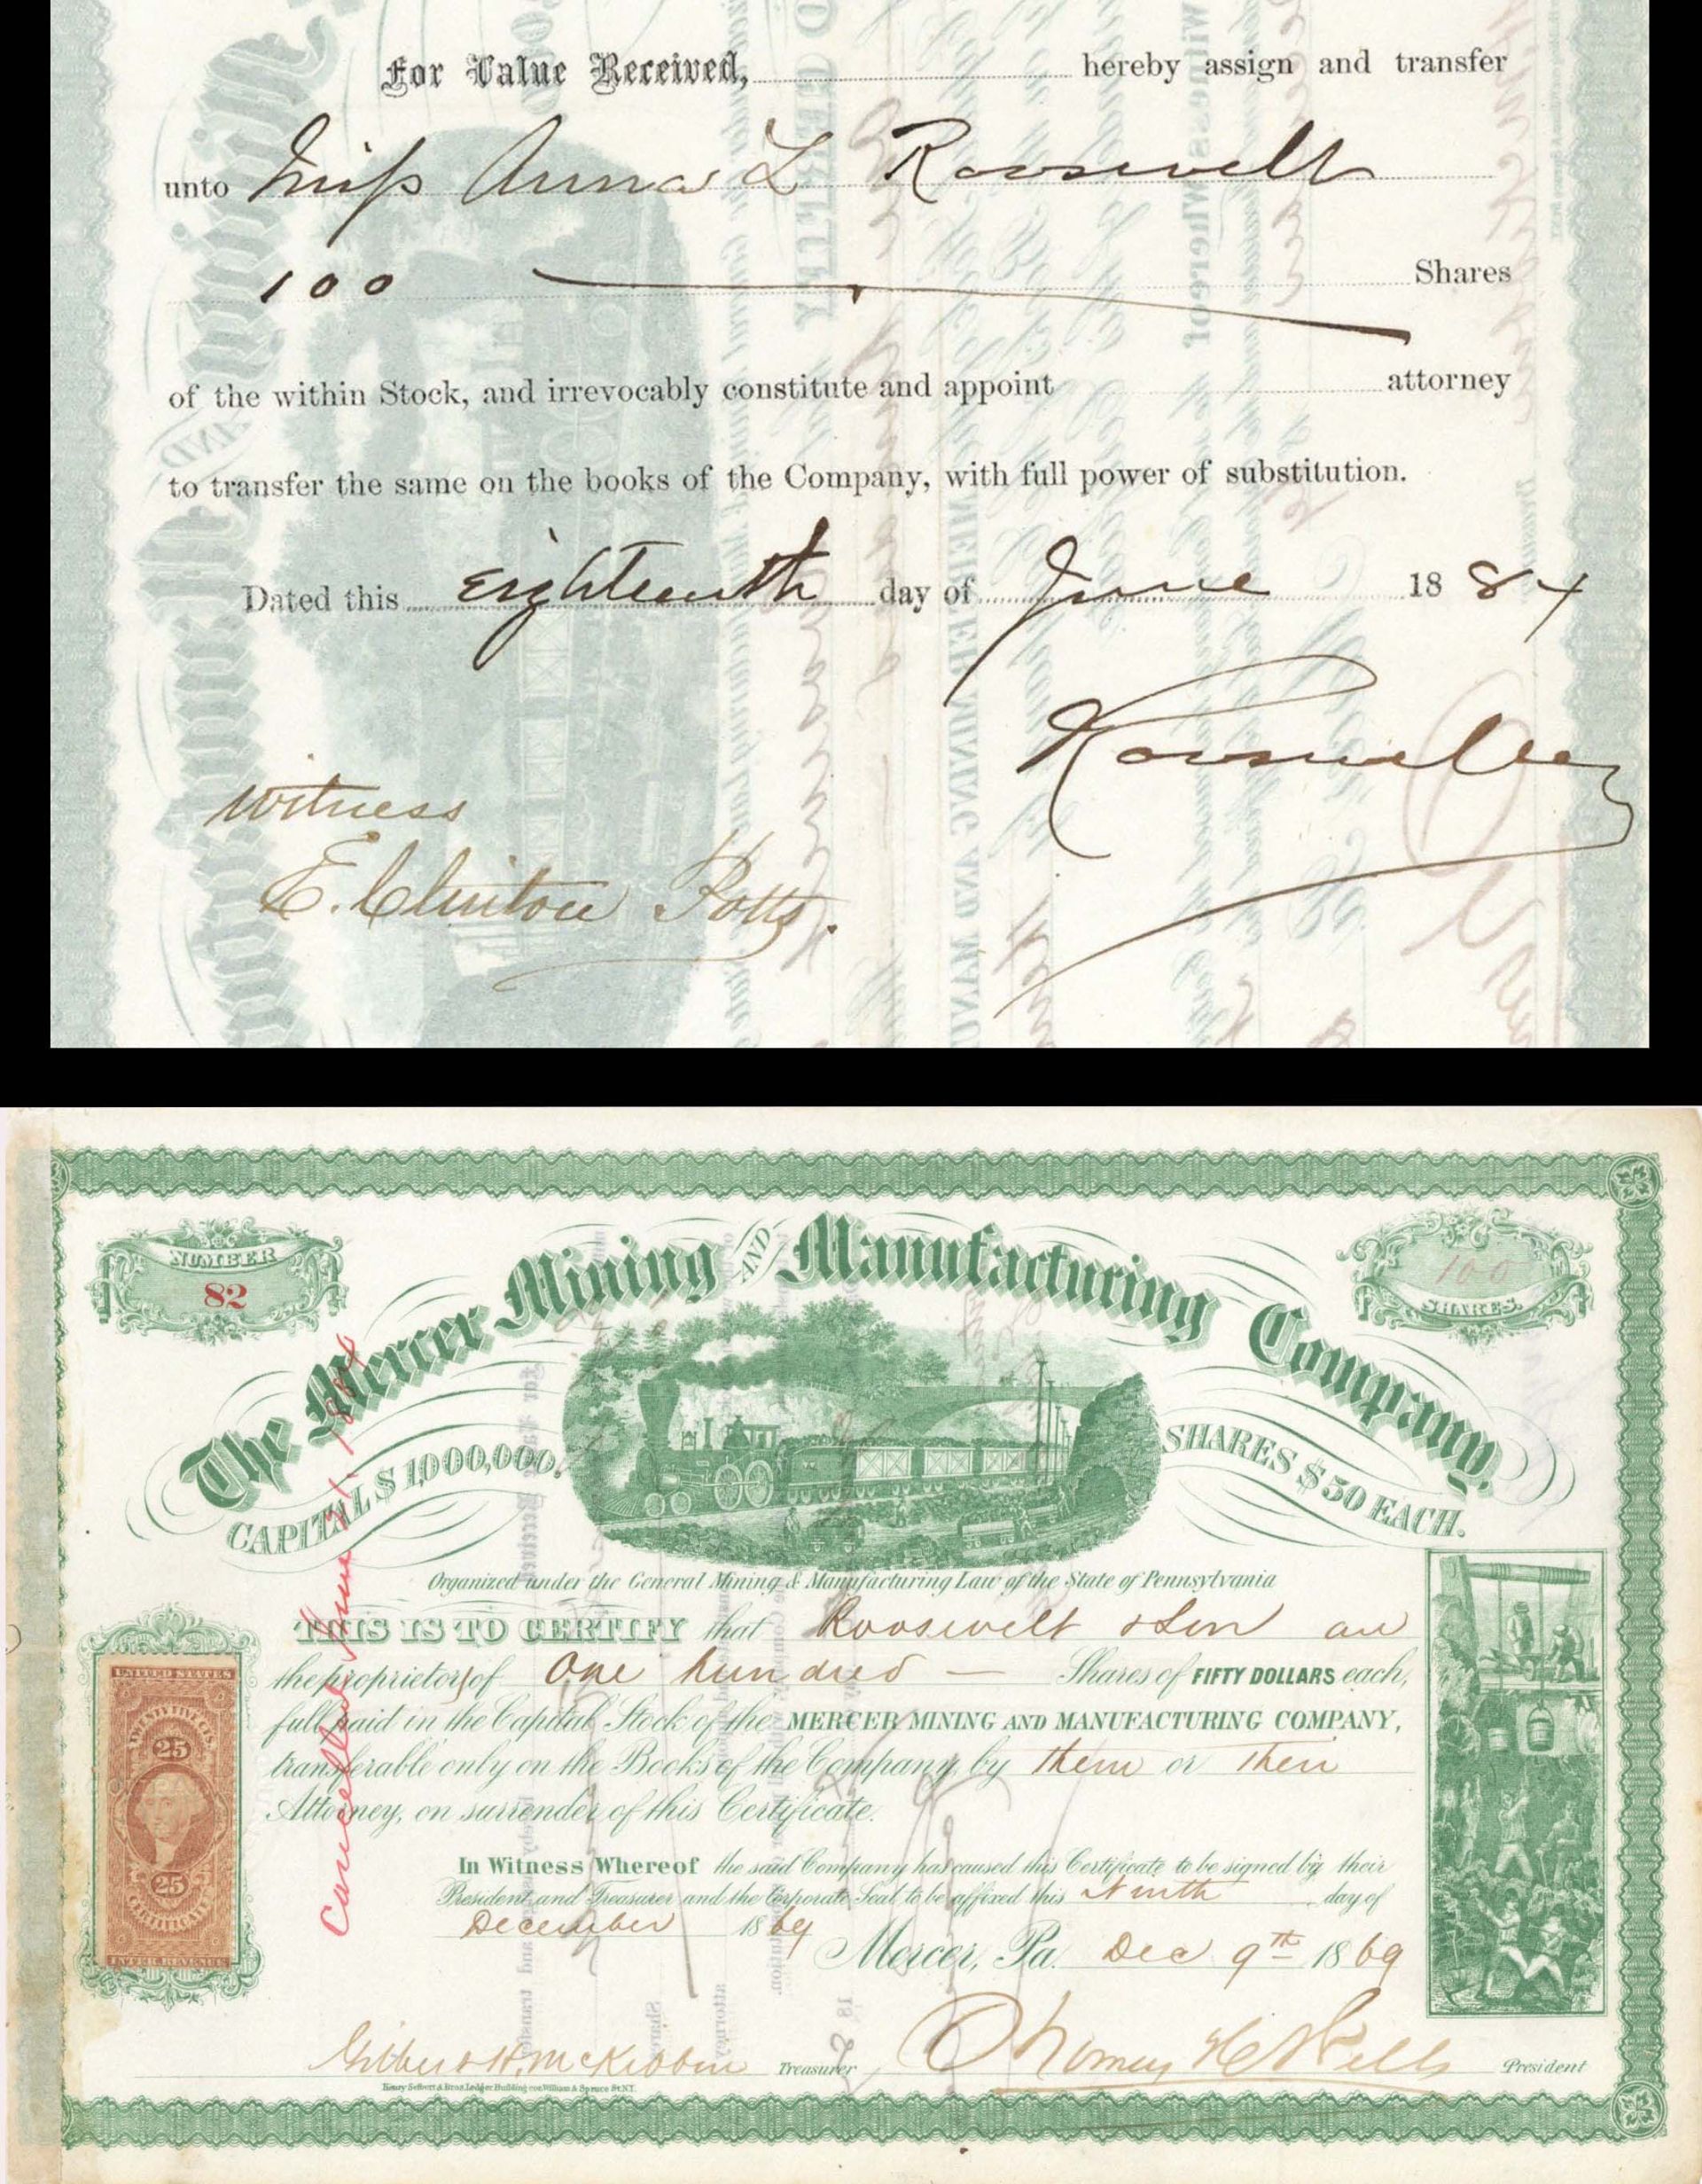 For Value Received, hereby assign and transfer
unto Miss Anna L Roosevelt
100 Shares
of the within Stock, and irrevocably constitute and appoint attorney
to transfer the same on the books of the Company, with full power of substitution.
Dated this Eighteenth day of June 1884
witness
E. Clinton Potts.
NUMBER
82
100
SHARES.
The Mercer Mining AND Manufacturing Company,
CAPITAL $ 1,000,000.
SHARES $ 50 EACH.
Organized under the General Mining & Manufacturing Law of the State of Pennsylvania
THIS IS TO CERTIFY that Roosevelt & Son are
the proprietors of One hundred — Shares of FIFTY DOLLARS each,
full paid in the Capital Stock of the MERCER MINING AND MANUFACTURING COMPANY,
transferable only on the Books of the Company by them or their
Attorney, on surrender of this Certificate.
In Witness Whereof the said Company has caused this Certificate to be signed by their
President and Treasurer and the Corporate Seal to be affixed this Ninth day of
December 1869
Mercer, Pa. Dec 9th 1869
Treasurer
Thomas President
Cancelled June 1884
UNITED STATES
TWENTY FIVE CTS.
25
25
CERTIFICATE
INTER. REVENUE